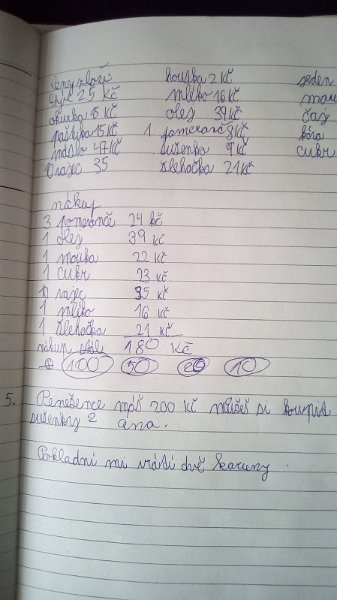 ceny zboží houska 2 Kč seden
25 Kč mléko 16 Kč mou
okurka 15 Kč olej 39 Kč čaj
paštika 15 Kč 1 pomeranč 8 Kč
máslo 47 Kč sušenka 9 Kč cukr
10 vajec 35 šlehačka 21 Kč
nákup
3 pomeranče 24 kč
1 olej 39 kč
1 mouka 22 Kč
1 cukr 23 kč
10 vajec 35 kč
1 mléko 16 kč
1 šlehačka 21 kč
nákup stál 180 Kč
100 50 20 10
5. Peněžence máš 200 Kč můžeš si koupit
sušenky 2 ana.
Pokladní mi vrátí dvě koruny.